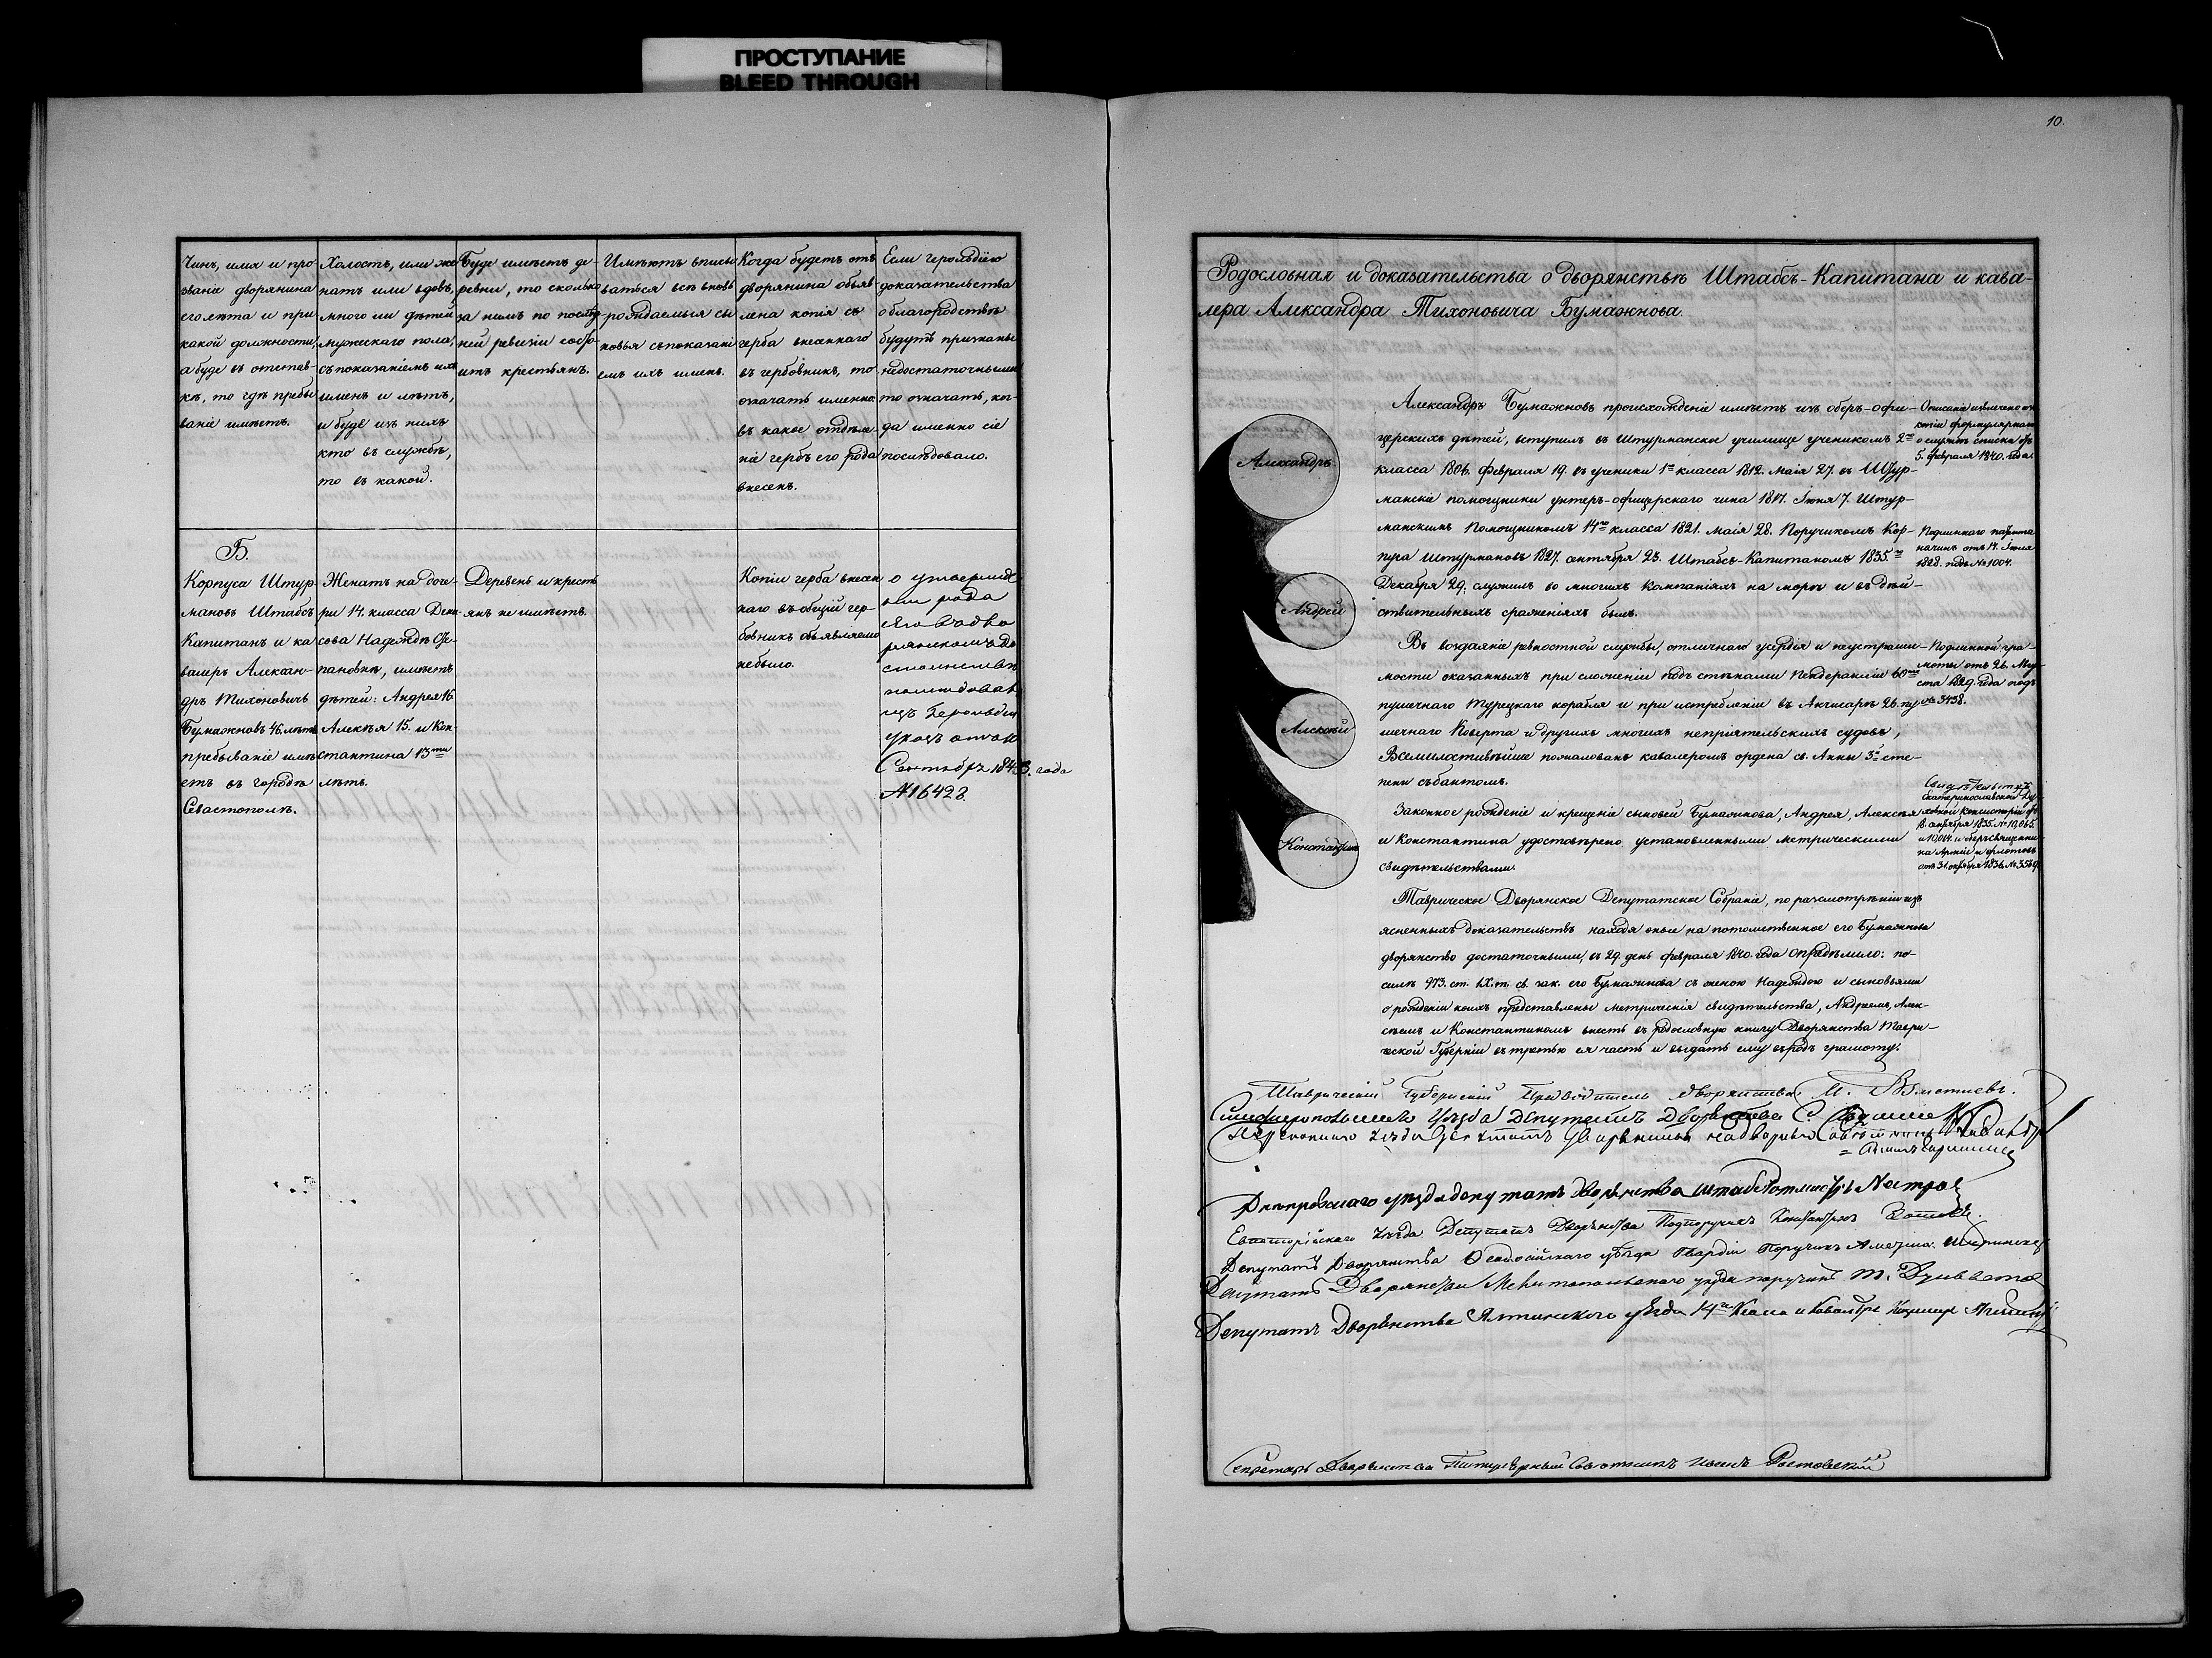 ПРОСТУПАНИЕ
BLEED THROUGH
Чинъ, имя и про-
званіе дворянина
его лѣта и при
какой должности,
а буде въ отстав-
кѣ, то гдѣ пребы
ваніе имѣетъ.
Холостъ, или же
натъ или вдовъ,
много ли дѣтей
мужескаго пола,
съ показаніемъ ихъ
именъ и лѣтъ,
и буде изъ нихъ
кто въ службѣ,
то въ какой.
Буде имѣетъ де-
ревни, то сколько
за нимъ по послѣд
ней ревизіи состо-
итъ крестьянъ.
Имѣютъ вписы
ваться всѣ вновь
рождаемыя сы
новья съ показані
емъ ихъ именъ.
Когда будетъ отъ
дворянина объяв-
лена копія съ
герба внесеннаго
въ гербовникъ, то
означать именно:
въ какое отдѣле-
ніе гербъ его рода
внесенъ.
Если герольдіею
доказательства
о благородствѣ
будутъ признаны
недостаточными
то означать, ког-
да именно сіе
послѣдовало.
Б.
Корпуса Штур
мановъ Штабсъ
Капитанъ и ка
валеръ Алексан-
дръ Тихоновичъ
Бумажновъ 46. лѣтъ
пребываніе имѣ
етъ въ городѣ
Севастополѣ.
Женатъ на доче-
ри 14. класса Дени
сова Надеждѣ Сте-
пановнѣ, имѣетъ
дѣтей: Андрея 16.
Алексѣя 15. и Кон-
стантина 13ти
лѣтъ.
Деревень и кресть
янъ не имѣетъ.
Копіи герба внесен
наго въ общій гер-
бовникъ объявляемо
небыло.
о утвержде
ніи рода
его въ дво
рянскомъ до
стоинствѣ
послѣдовалъ
изъ Герольдіи
указъ отъ
Сентября 1843. года
№ 16428.
10.
Родословная и доказательства о дворянствѣ Штабсъ-Капитана и кава-
лера Александра Тихоновича Бумажнова.
Александръ
Андрей
Алексѣй
Константинъ
Александръ Бумажновъ происхожденіе имѣетъ изъ оберъ-офи-
церскихъ дѣтей, вступилъ въ Штурманское училище ученикомъ 2го
класса 1804. февраля 19. въ ученики 1го класса 1812. маія 27. въ Штур-
манскіе помощники унтеръ-офицерскаго чина 1817. Іюня 7. Штур-
манскимъ Помощникомъ 14го класса 1821. маія 28. Поручикомъ Кор-
пуса Штурмановъ 1827. октября 23. Штабсъ-Капитаномъ 1835го
Декабря 29; служилъ во многихъ кампаніяхъ на морѣ и въ дѣй-
ствительныхъ сраженіяхъ былъ.
Въ воздаяніе ревностной службы, отличнаго усердія и неустраши-
мости оказанныхъ при сложеніи подъ стѣнами Пендераклии 60ти
пушечнаго Турецкаго корабля и при истребленіи въ Акчисарѣ 26. пу
шечнаго Коверта и другихъ многихъ непріятельскихъ судовъ,
Всемилостивѣйше пожалованъ кавалеромъ ордена св. Анны 3й сте-
пени съ бантомъ.
Законное рожденіе и крещеніе сыновей Бумажнова, Андрея, Алексѣя
и Константина удостовѣрено установленными метрическими
свидѣтельствами.
Таврическое Дворянское Депутатское Собраніе, по разсмотрѣніи изъ
ясненныхъ доказательствъ находя оныя на потомственное его Бумажнова
дворянство достаточными, въ 29. день февраля 1840. года опредѣлило: по-
силѣ 973. ст. IX. т. св. зак. его Бумажнова съ женою Надеждою и сыновьями
о рожденіи коихъ представлены метрическія свидѣтельства, Андреемъ, Алек-
сѣемъ и Константиномъ внесть въ родословную книгу Дворянства Таври-
ческой Губерніи въ третью ея часть и выдать ему въ родъ грамоту.
Описаніе извлечено изъ
копіи формулярнаго
о службѣ списка отъ
5. февраля 1840. года.
Подлиннаго патента
на чинъ отъ 14. Іюля
1828. подъ № 1004.
Подлинной гра-
моты отъ 26. Авгу-
ста 1829. года подъ
№ 3438.
Свидѣтельствъ
Екатеринославской Ду-
ховной Консисторіи отъ
октября 1835. № 10,065.
и 10,064. и оберъ священни-
ка Арміи и флотовъ
отъ 31. октября 1836. № 3589.
Таврическій Губернскій Предводитель дворянства М.
Симферопольскаго Уѣзда Депутатъ Дворянства
Перекопскаго уѣзда Депутатъ Дворянства надворный совѣтникъ
Днѣпровскаго уѣзда депутатъ дворянства штабсъ-ротмистръ
Евпаторійскаго уѣзда Депутатъ Дворянства Подпоручикъ Константинъ
Депутатъ Дворянства Ѳеодосійскаго уѣзда Гвардіи Поручикъ
Депутатъ Дворянства Мелитопольскаго уѣзда поручикъ
Депутатъ Дворянства Ялтинскаго уѣзда 14го Класса и Кавалеръ
Секретарь Дворянства Титулярный Совѣтникъ